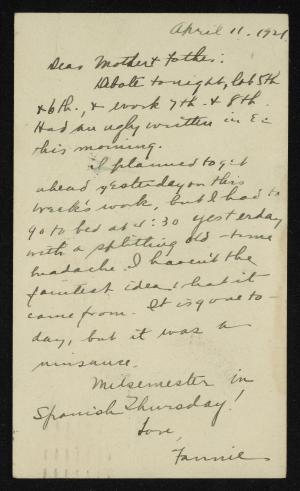 April 11. 1921
Dear Mother & Father:
Debate tonight, lab 5th
& 6th, & work 7th & 8th.
Had an ugly written in Ec
this morning.
I planned to get
ahead yesterday on this
week's work, but I had to
go to bed at 4:30 yesterday
with a splitting old-time
headache. I haven't the
faintest idea what it
came from. It is gone to-
day, but it was a
nuisance.
Midsemester in
Spanish Thursday!
Love,
Fannie